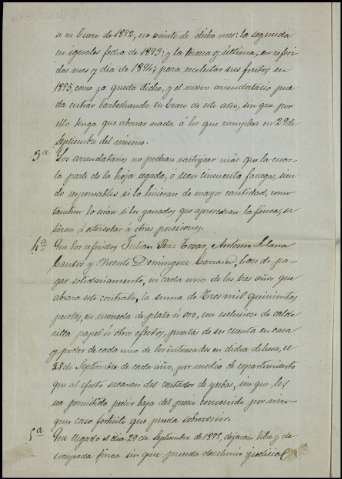 a en Enero de 1892, no veinte de dicho mes: la segunda
en iguales fecha de 1893; y la tercera y última, en referi-
dos mes y dia de 1894; para recolectar sus frutos en
1895, como ya queda dicho, y el nuevo arrendatario pue-
da entrar barbechando en Enero de este año, sin que por
ello tenga que abonar nada á los que cumplen en 29 de
Septiembre del mismo.
3ª Los arrendatarios no podrán restrojear más que la cuar-
ta parte de la hoja segada, o sean cincuenta fanegas, sien-
do responsables si lo hicieran de mayor cantidad, como
tambien lo serán si los ganados que aprovechan la finca, sa-
lieran á estercolar á otras posesiones.
4ª Que los referidos Julian Tovar, Antonio
y Vicente Dominguez han de pa-
gar solidariamente, en cada uno de los tres años que
abraza este contrato, la suma de Tres mil quinientas
pesetas, en moneda de plata ú oro, con exclusion de calde-
rilla papel ú otros efectos, puestas de su cuenta en casa
y poder de cada uno de los interesados en dicha dehesa, el
28 de Septiembre de cada año, por medio de repartimiento
que al efecto sacaran del contador de yerbas, sin que les
sea permitido pedir baja del precio convenido por nin-
gun caso fortuito que pueda sobrevenir.
5ª Que llegado el dia 29 de Septiembre de 1895, dejaran libre y de-
socupada finca sin que pueda